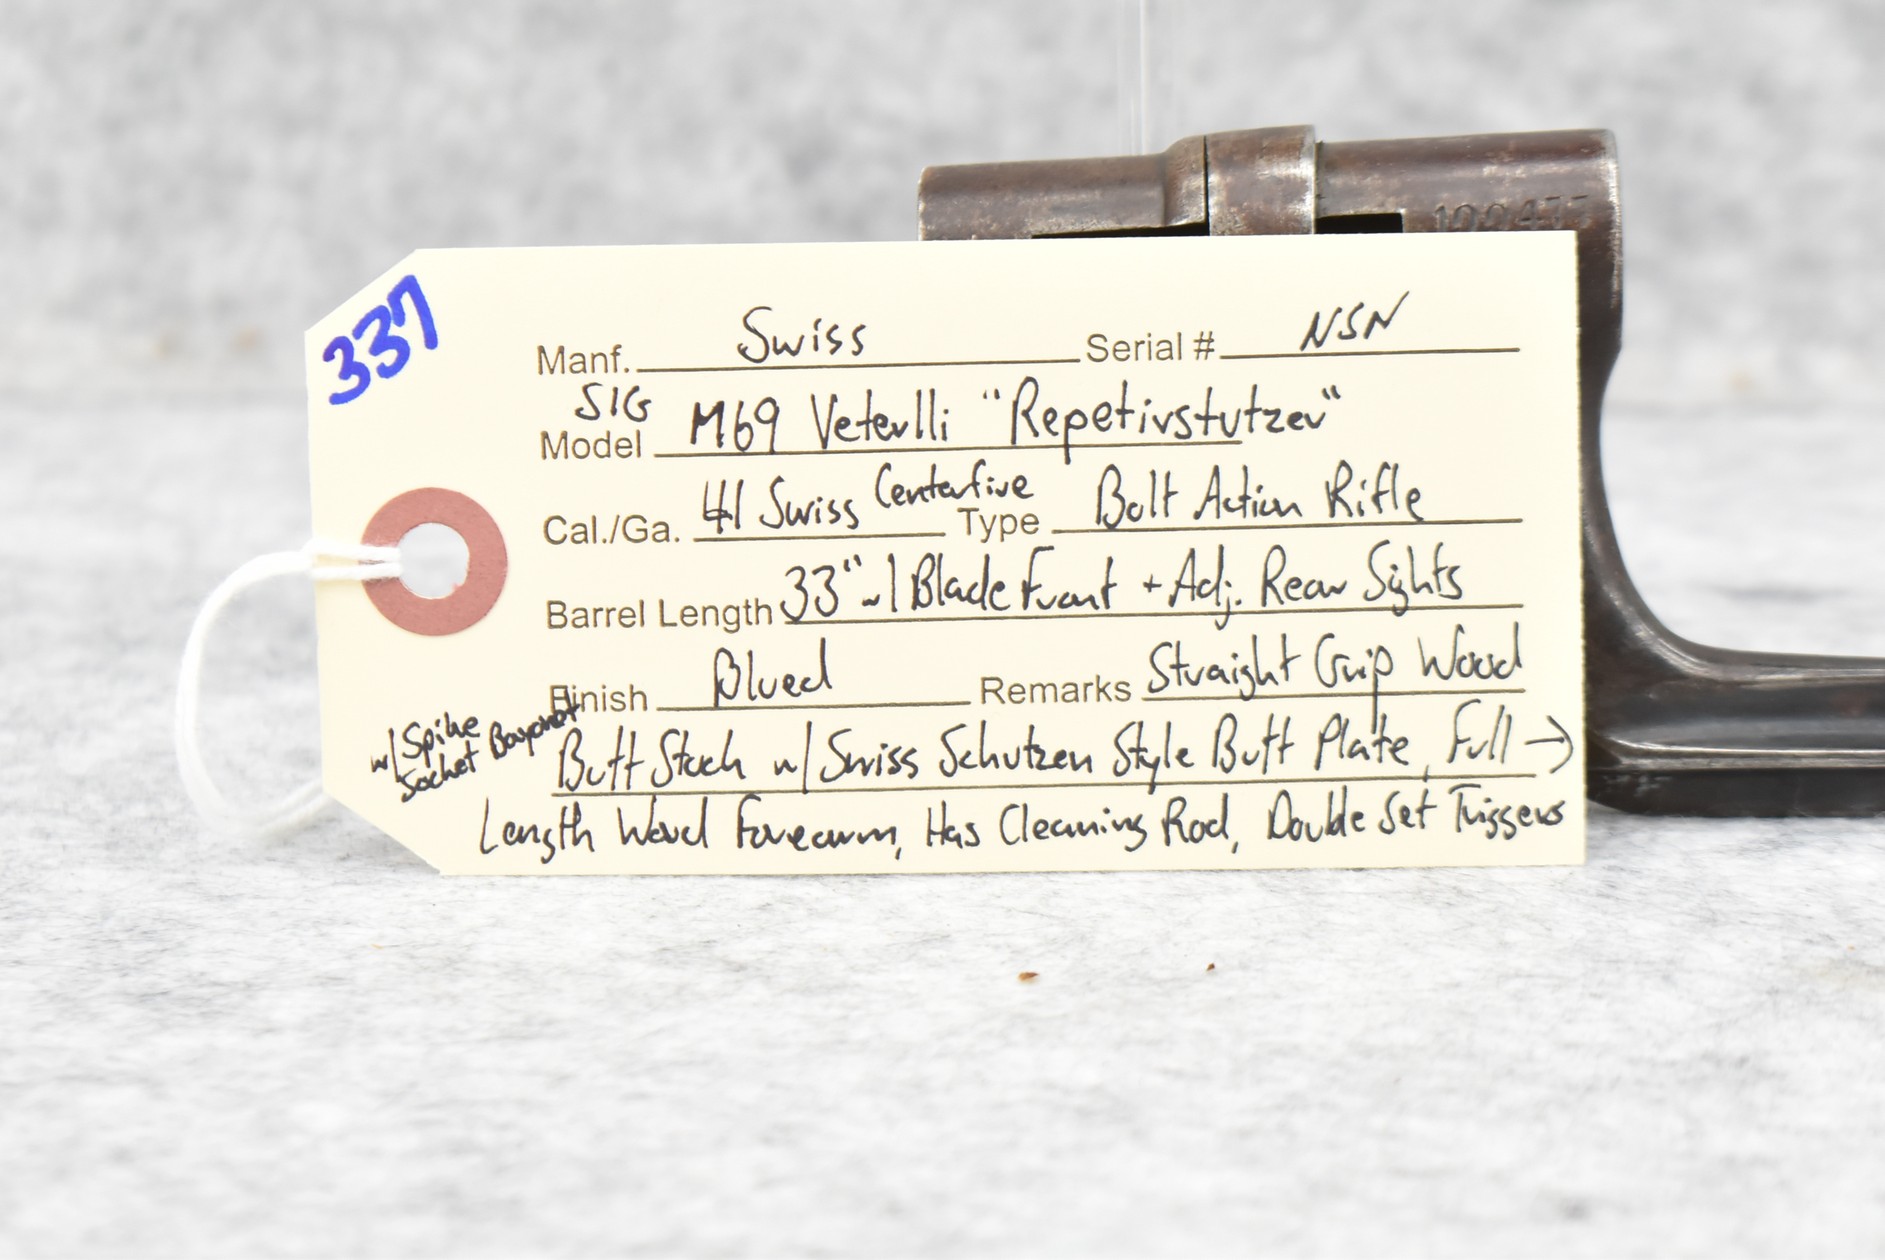 337
Manf. Swiss Serial # NSN
SIG
Model M69 Veterlli "Repetirstutzer"
Cal./Ga. 41 Swiss Centerfire Type Bolt Action Rifle
Barrel Length 33" w/ Blade Front + Adj. Rear Sights
Finish Blued Remarks Straight Grip Wood
w/ Spike
Socket Bayonet
Butt Stock w/ Swiss Schutzen Style Butt Plate, Full →
Length Wood Forearm, Has Cleaning Rod, Double Set Triggers